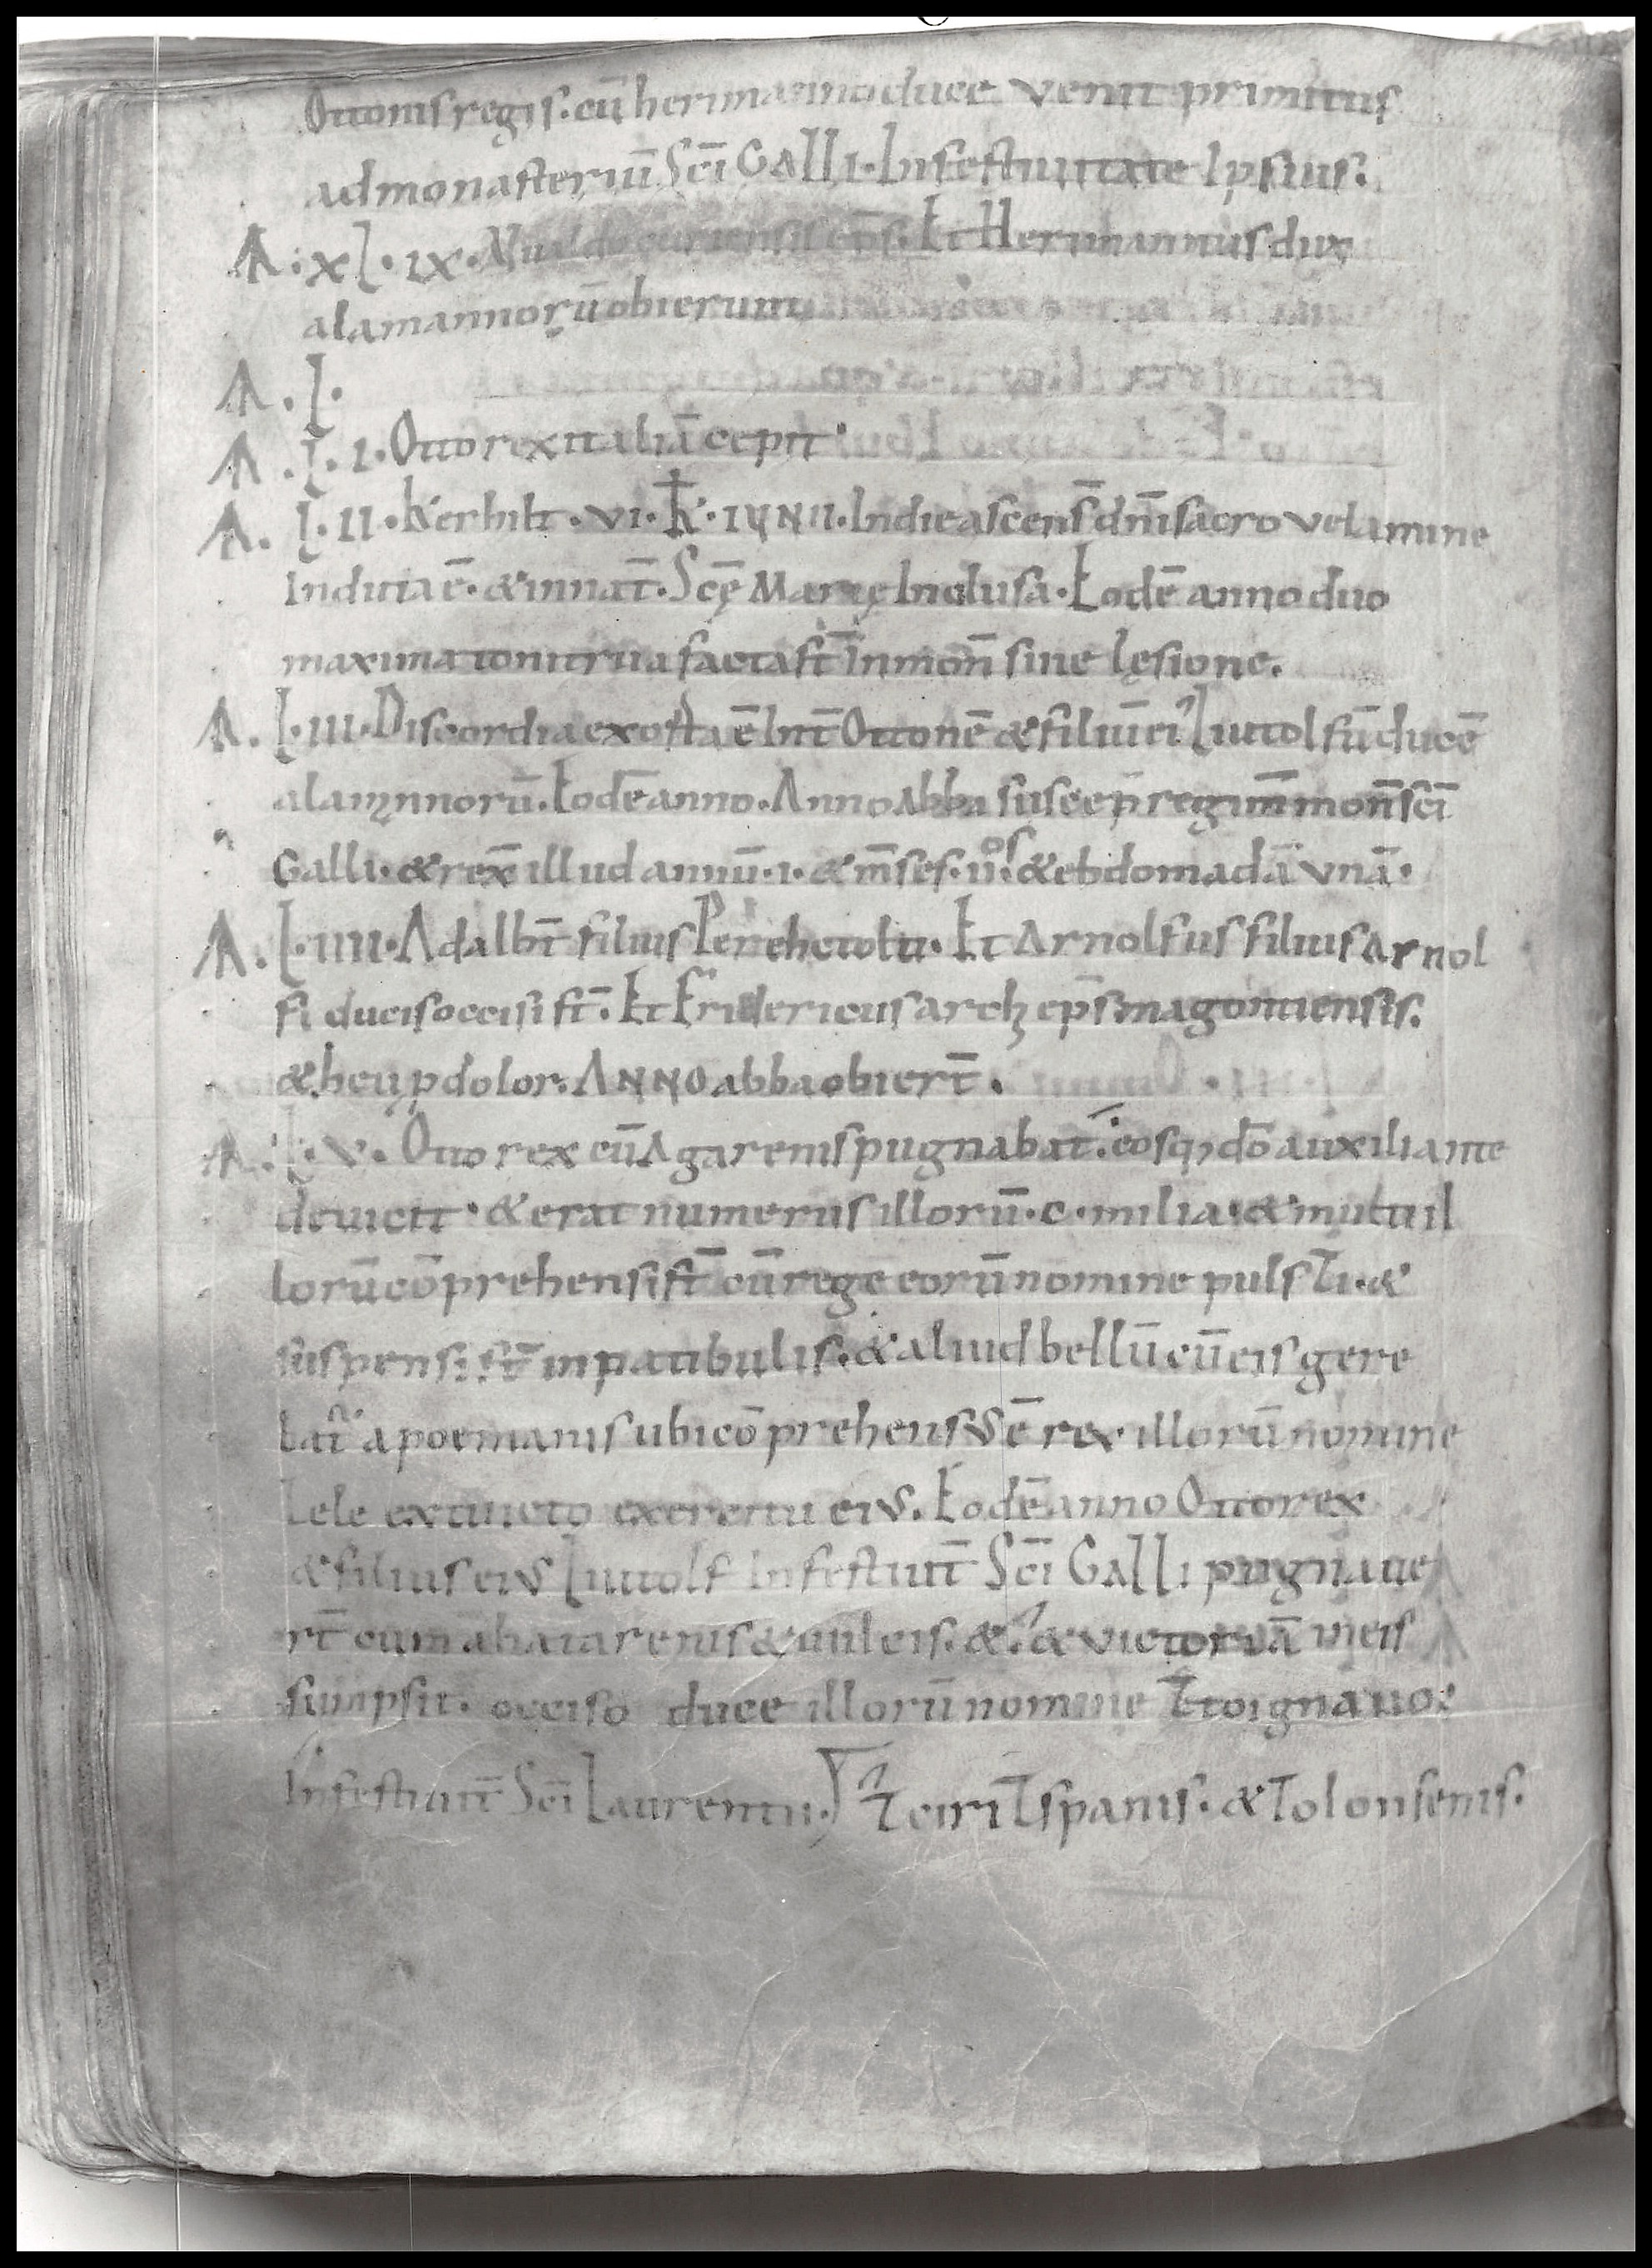 Ottonis regis. cū herimanno duce venit primitus
ad monasteriū Sc̄i Galli. In festiuitate Ipsius.
A. xl. ix. Vualdo curiensis ep̄s. Et Herimannus dux
alamannorū obierunt
A. L.
A. L. I. Otto rex italiā cepit.
A. L. II. Kerhilt. vi. k̄. IUNII. In die ascens̄ dn̄i sacro velamine
Induta ē. & in nat̄. Sc̄ę Marię Inclusa. Eodē anno duo
maxima tonitrua facta st̄ In mon̄ sine lęsione.
A. L. III. Discordia exorta ē Int̄ Ottonē & filiū ei' Liutolfū ducē
alamannorū. Eodē anno. Anno Abba suscep̄ regim̄ mon̄ sc̄i
Galli. & rex̄ illud annū. I. & m̄ses. II.os & ebdomadā vnā.
A. L. IIII. Adalbt̄ filius Perehtoltii. Et Arnolfus filius Arnol
fi ducis occisi st̄. Et Fridericus archep̄s magontiensis.
& heu p dolor. ANNO abba obiert̄.
A. L. V. Otto rex cū Agarenis pugnabat. eosq; dō auxiliante
deuicit. & erat numerus illorū. c. milia. & multi il
lorū cōprehensi st̄ cū rege eorū nomine pulszi. &
suspensi st̄ in patibulis. & aliud bellū cū eis gere
bat̄ a poemanis ubi cōprehensus ē rex illorū nomine
Lele extincto exercitu eius. Eodē anno Otto rex
& filius eius Liutolf In festiuit̄ Sc̄i Galli pugnaue
rt̄ cum abatarenis & uulcis. & & victoriā in eis
sumpsit. occiso duce illorū nomine Ztoignauoe
In festiuit̄ Sc̄i Laurentii. Zcirizspanis. & Tolonsenis.